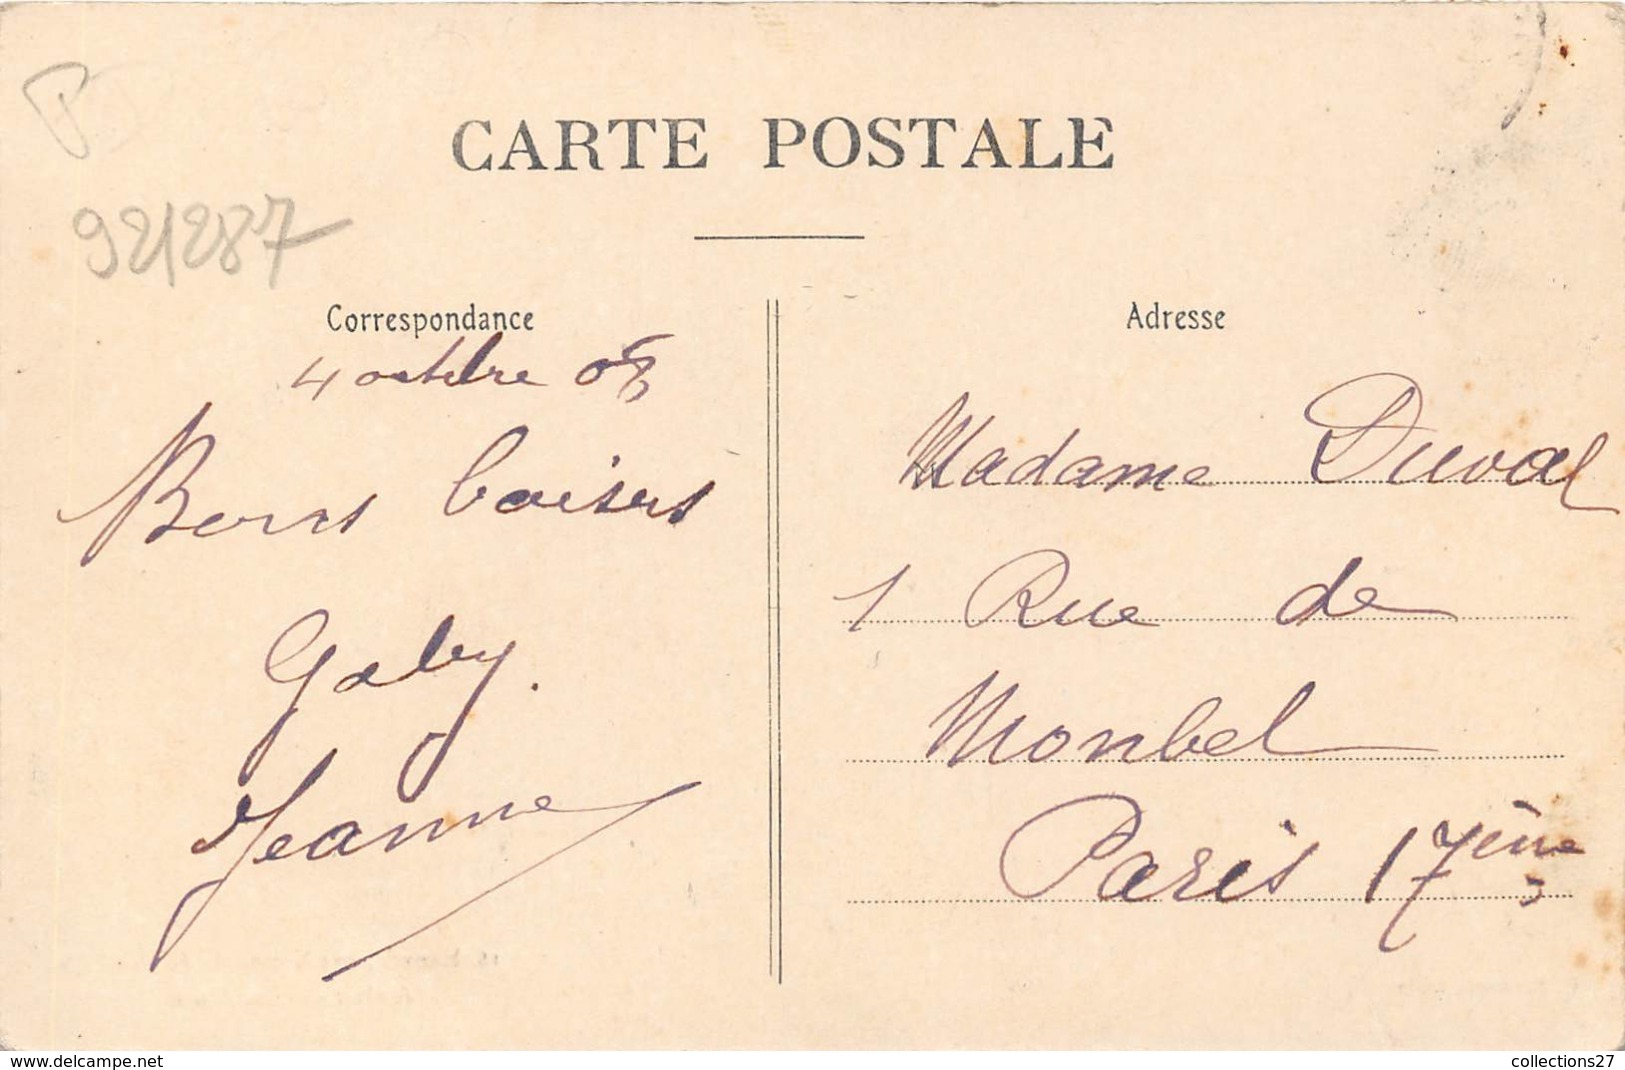 CARTE POSTALE
921287
Correspondance
4 octbre 05
Bons baisers
Gaby.
Jeanne
Adresse
Madame Duval
1 Rue de
Monbel
Paris 17ème
www.delcampe.net
collections27